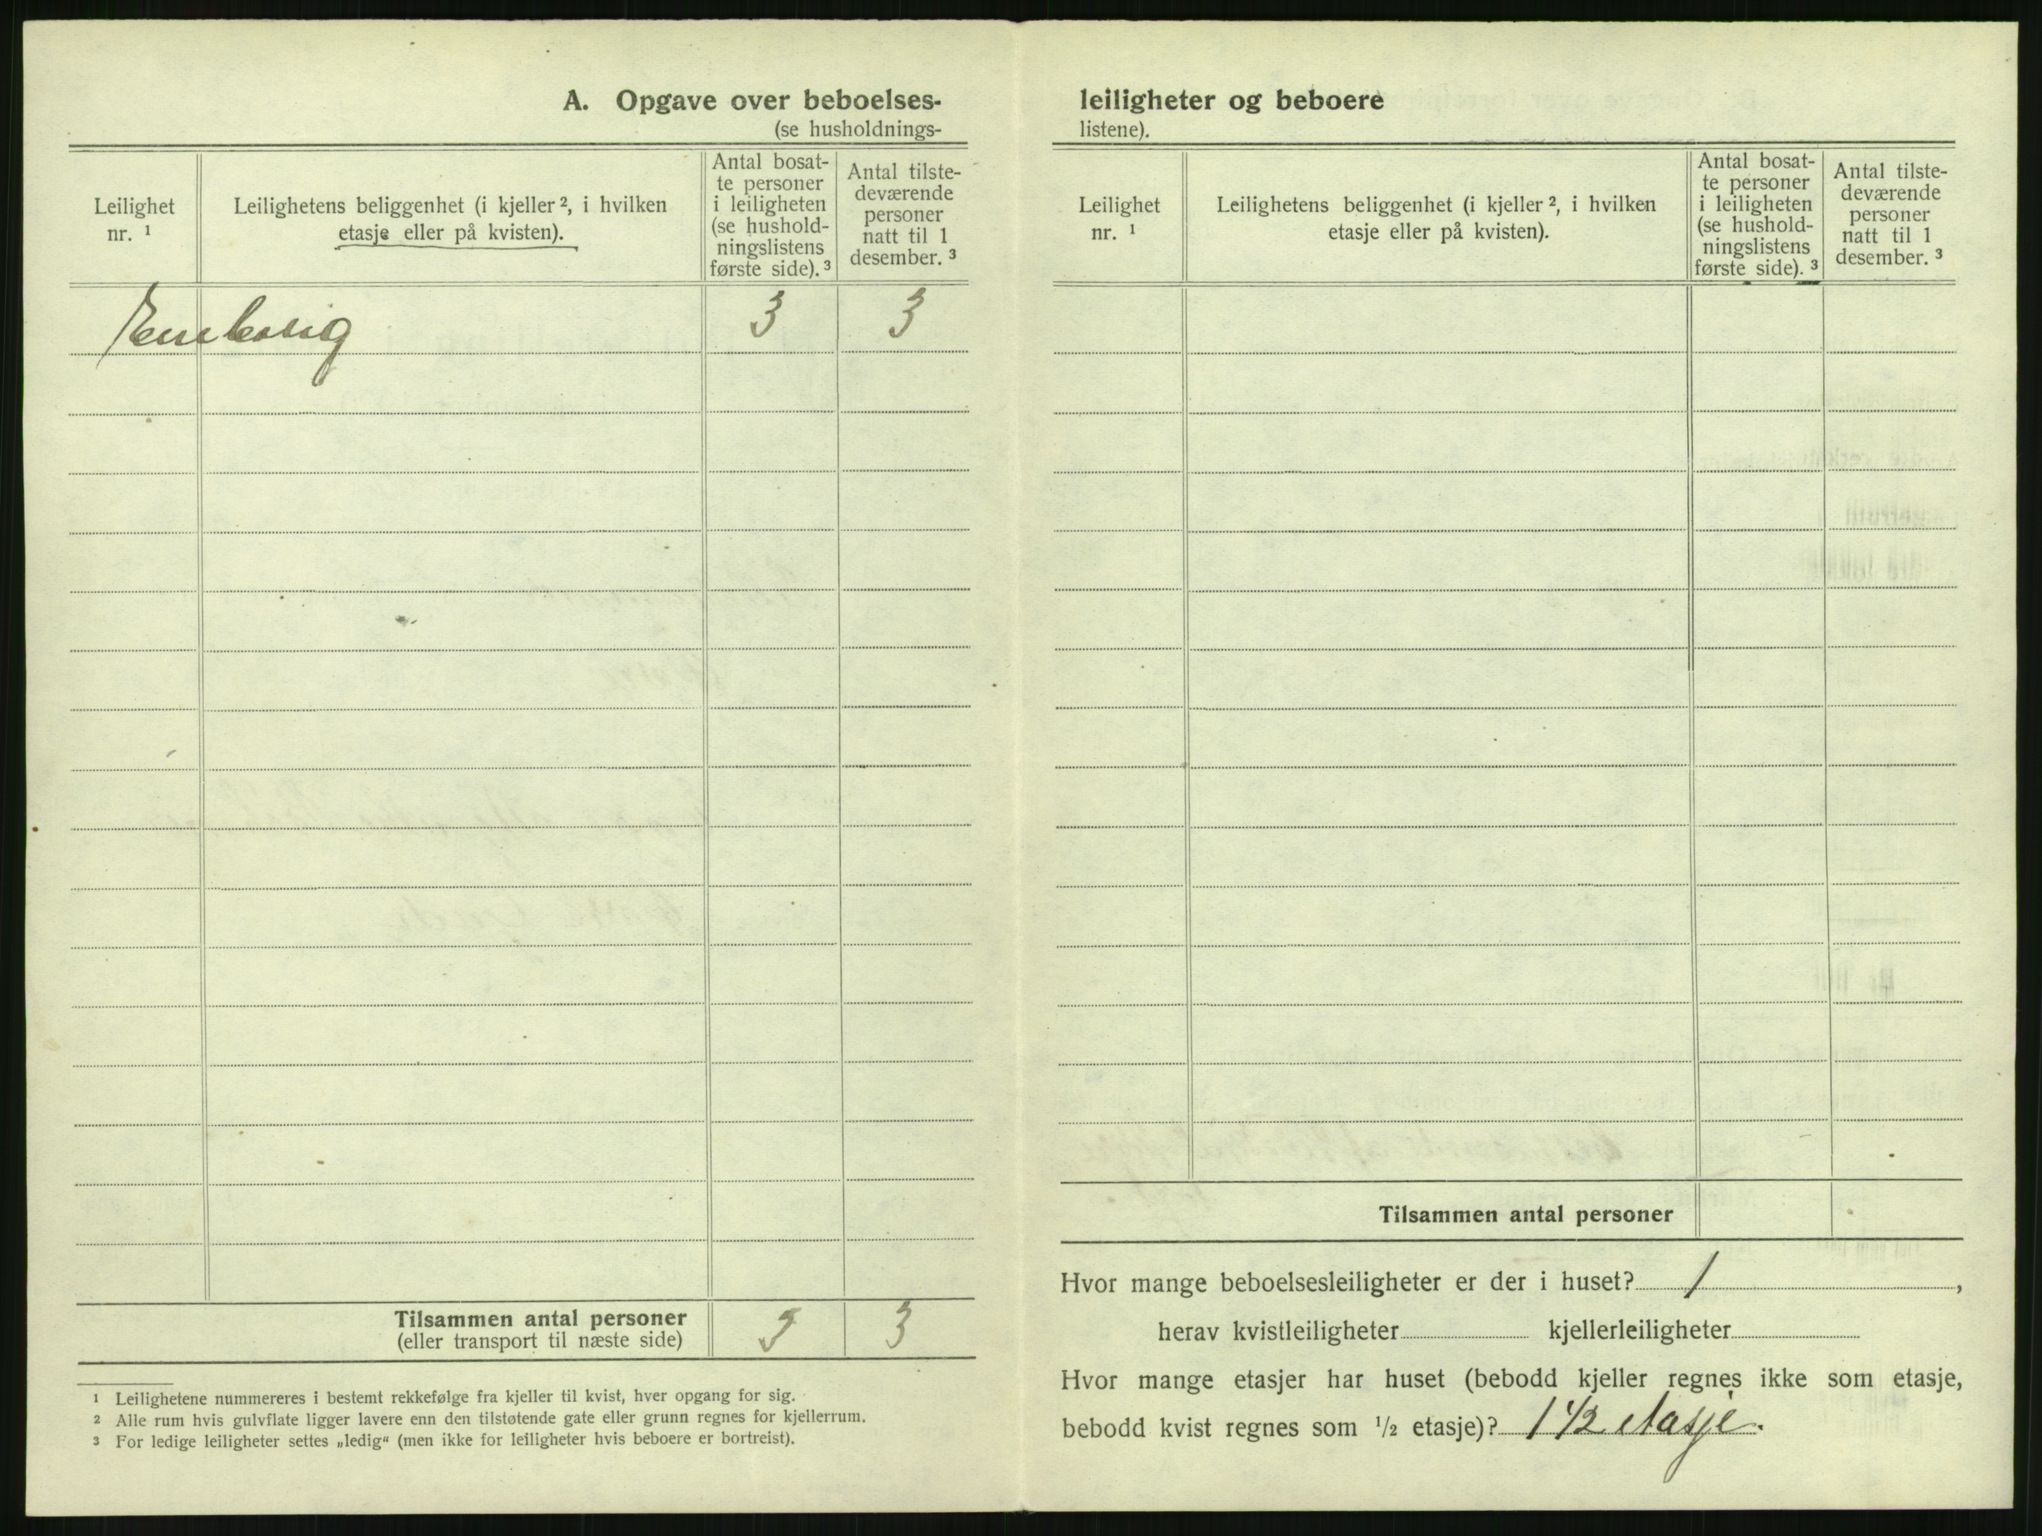 A. Opgave over beboelses-
(se husholdnings-
Leilighet nr. ¹
Leilighetens beliggenhet (i kjeller ², i hvilken
etasje eller på kvisten).
Antal bosat-
te personer
i leiligheten
(se hushold-
ningslistens
første side). ³
Antal tilste-
deværende
personer
natt til 1
desember. ³
Enebolig 3 3
Tilsammen antal personer 3 3
(eller transport til næste side)
¹ Leilighetene nummereres i bestemt rekkefølge fra kjeller til kvist, hver opgang for sig.
² Alle rum hvis gulvflate ligger lavere enn den tilstøtende gate eller grunn regnes for kjellerrum.
³ For ledige leiligheter settes „ledig“ (men ikke for leiligheter hvis beboere er bortreist).
leiligheter og beboere
listene).
Leilighet
nr. ¹
Leilighetens beliggenhet (i kjeller ², i hvilken
etasje eller på kvisten).
Antal bosat-
te personer
i leiligheten
(se hushold-
ningslistens
første side). ³
Antal tilste-
deværende
personer
natt til 1
desember. ³
Tilsammen antal personer
Hvor mange beboelsesleiligheter er der i huset? 1,
herav kvistleiligheter kjellerleiligheter
Hvor mange etasjer har huset (bebodd kjeller regnes ikke som etasje,
bebodd kvist regnes som ½ etasje)? 1 1/2 etasje.